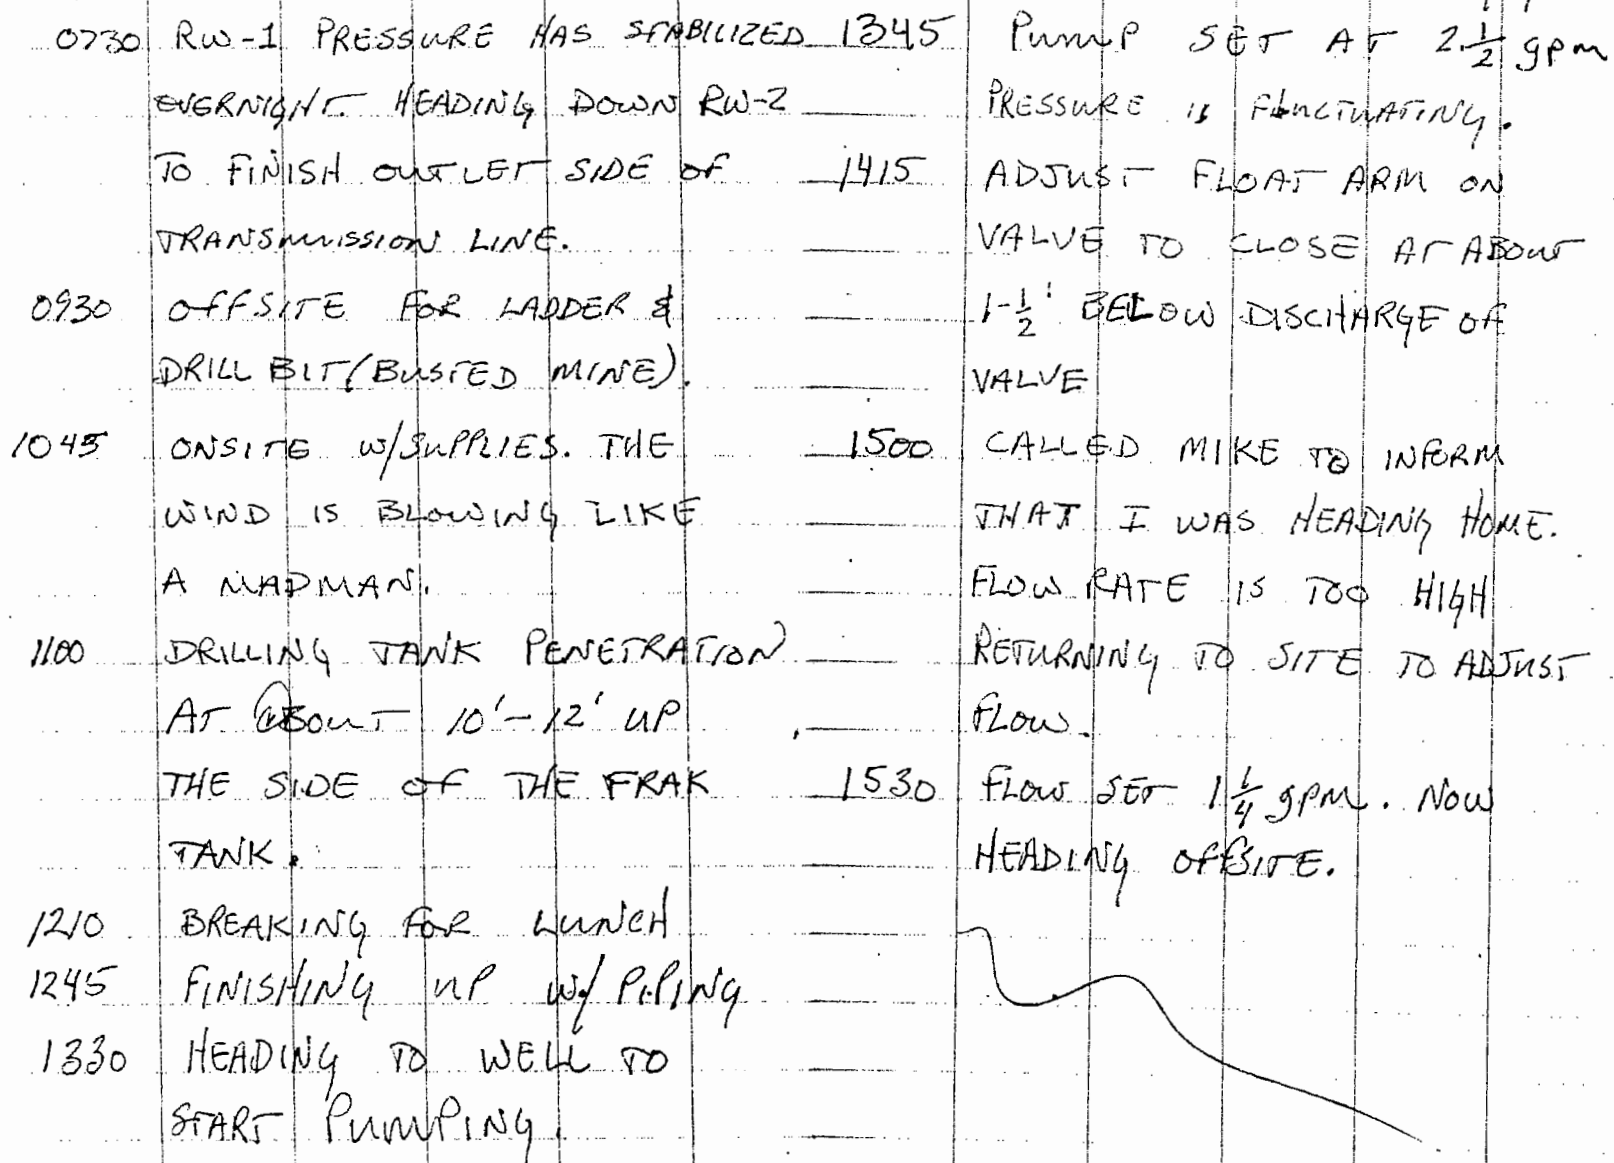 0730 RW-1 PRESSURE HAS STABILIZED
OVERNIGHT. HEADING DOWN RW-2
TO FINISH OUTLET SIDE OF
TRANSMISSION LINE.
0930 OFFSITE FOR LADDER &
DRILL BIT (BUSTED MINE).
1045 ONSITE W/SUPPLIES. THE
WIND IS BLOWING LIKE
A MADMAN.
1100 DRILLING TANK PENETRATION
AT ABOUT 10'-12' UP
THE SIDE OF THE FRAK
TANK.
1210 BREAKING FOR LUNCH
1245 FINISHING UP W/ PIPING
1330 HEADING TO WELL TO
START PUMPING.
1345 PUMP SET AT 2 1/2 gpm
PRESSURE IS FLUCTUATING.
1415 ADJUST FLOAT ARM ON
VALVE TO CLOSE AT ABOUT
1-1/2' BELOW DISCHARGE OF
VALVE
1500 CALLED MIKE TO INFORM
THAT I WAS HEADING HOME.
FLOW RATE IS TOO HIGH
RETURNING TO SITE TO ADJUST
FLOW.
1530 FLOW SET 1 1/4 gpm. NOW
HEADING OFFSITE.